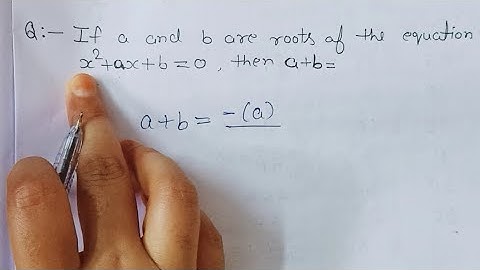 Q:- If a and b are roots of the equation
x²+ax+b=0, then a+b=
a+b = -(a)